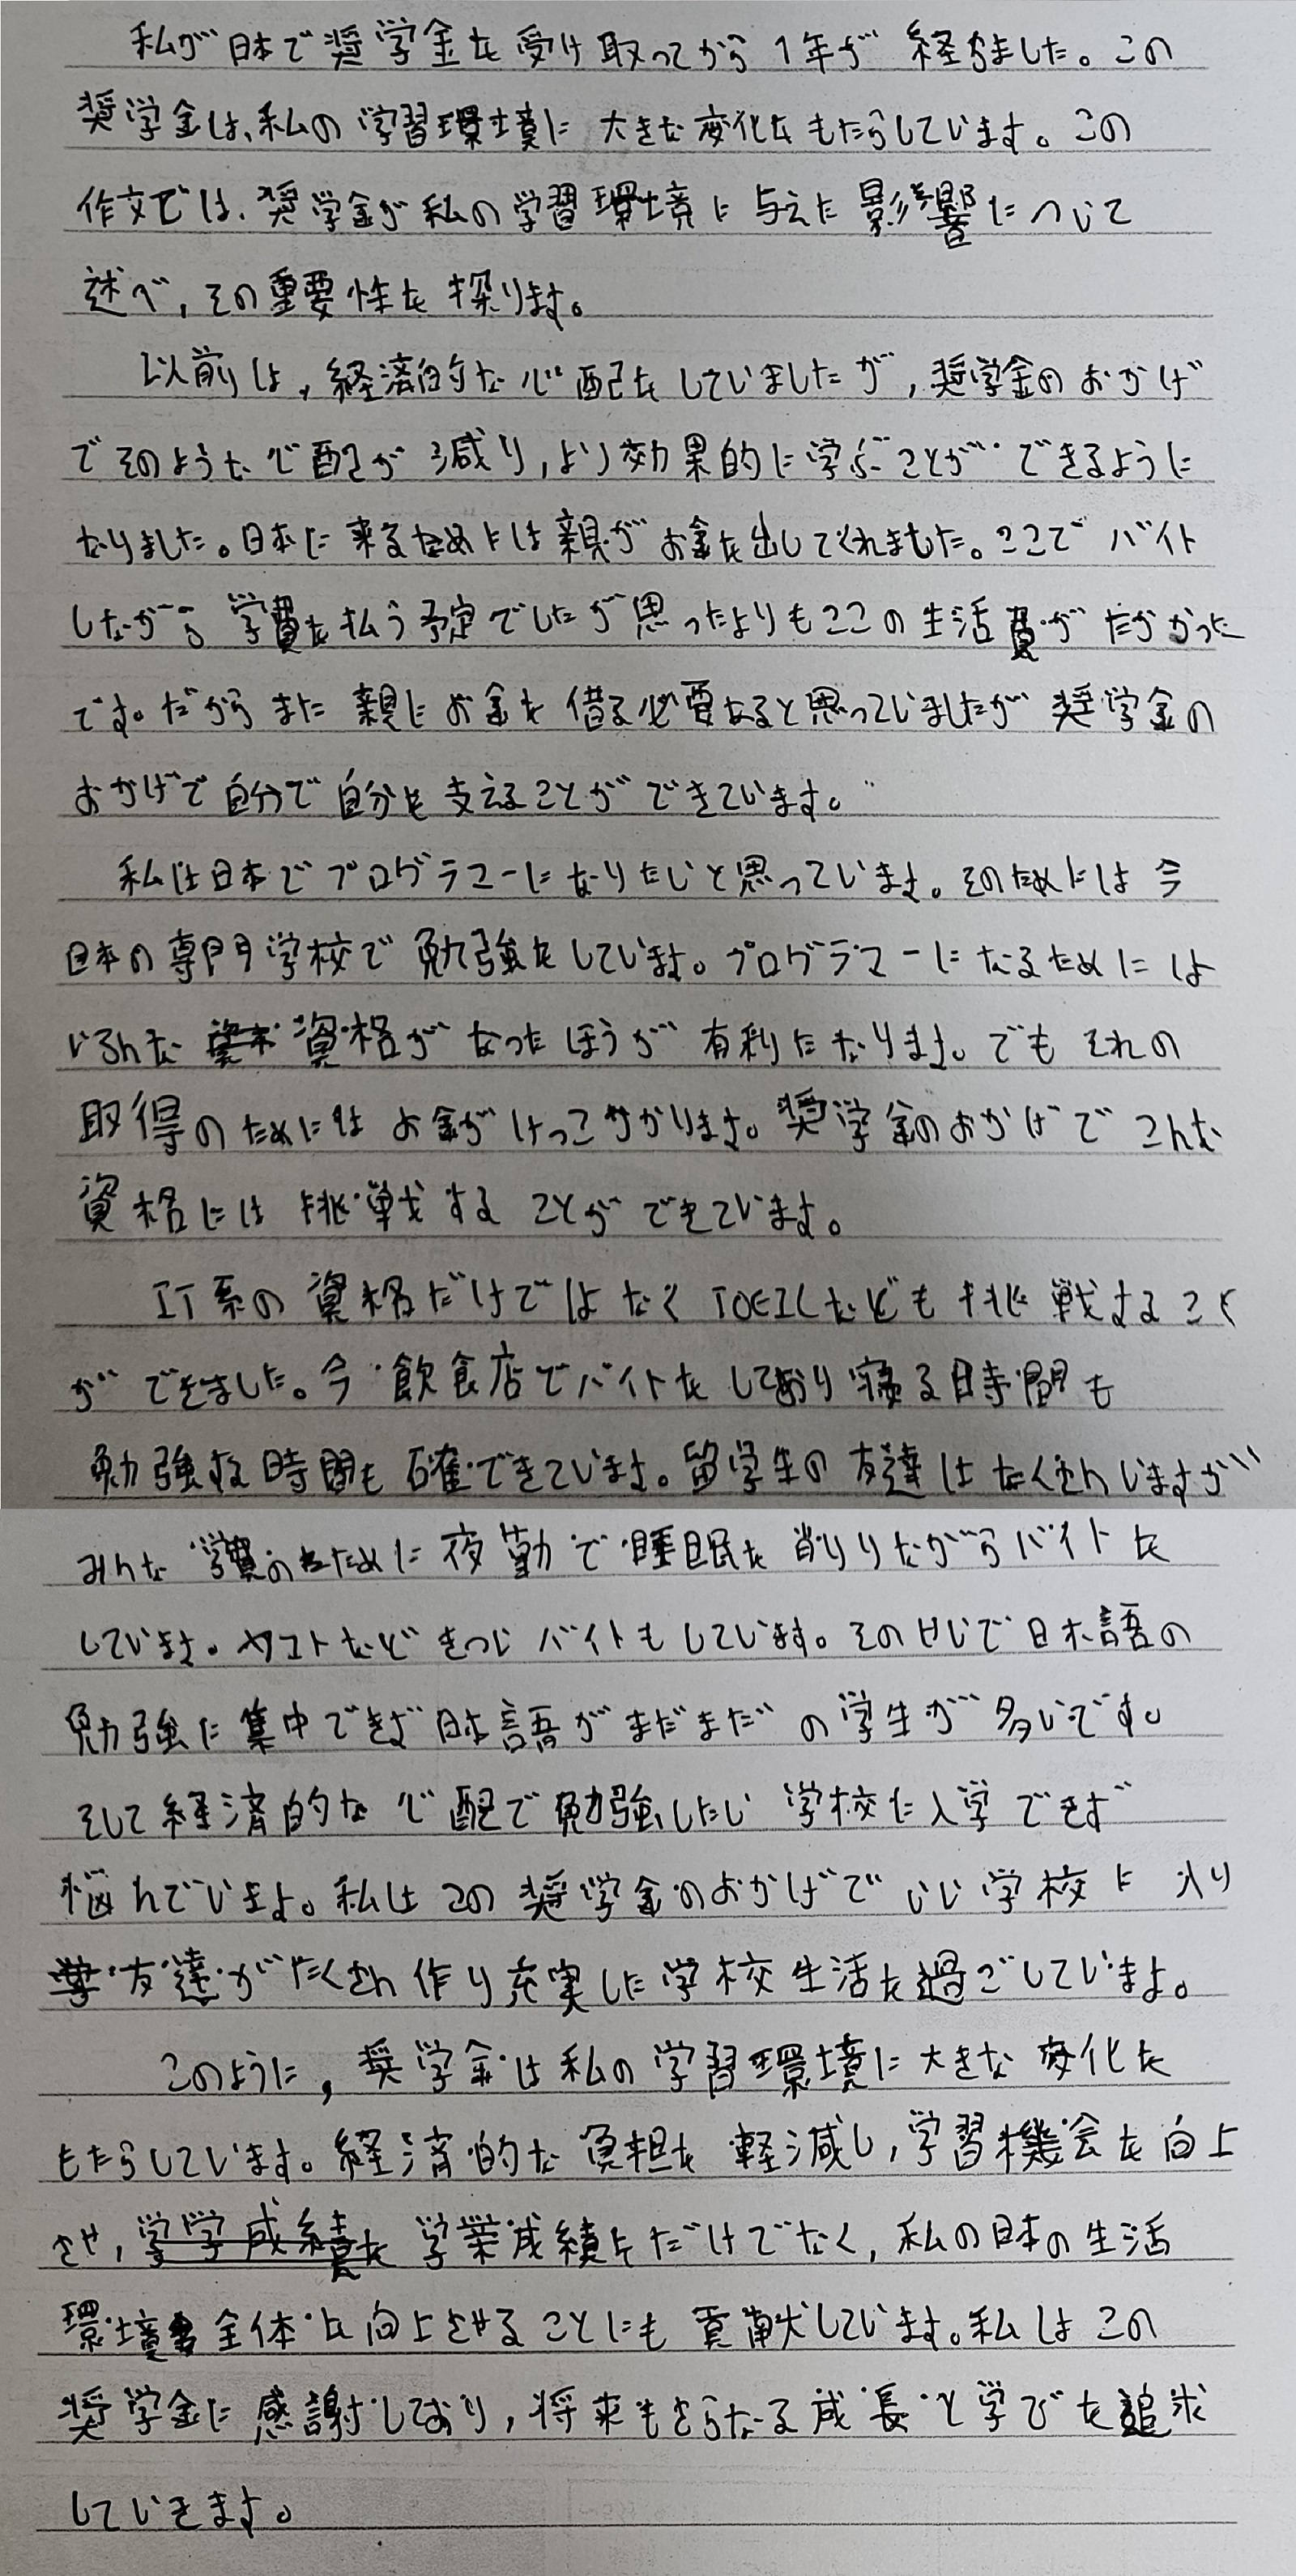 私が日本で奨学金を受け取ってから1年が経ちました。この
奨学金は、私の学習環境に大きな変化をもたらしています。この
作文では、奨学金が私の学習環境に与えた影響について
述べ,その重要性を探ります。
以前は,経済的な心配をしていましたが,奨学金のおかげ
でそのような心配が減り,より効果的に学ぶことができるように
なりました。日本に来るためには親がお金を出してくれました。ここでバイト
しながら学費を払う予定でしたが思ったよりもここの生活費がだかかった
です。だからまた親にお金を借る必要なると思っていましたが奨学金の
おかげで自分で自分を支えることができています。
私は日本でプログラマーになりたいと思っています。そのためには今
日本の専門学校で勉強をしています。プログラマーになるためには
いろんな資格がなったほうが有利になります。でもそれの
取得のためにはお金がけっこうかかります。奨学金のおかげでこんな
資格には挑戦することができています。
IT系の資格だけではなくTOEICなども挑戦すること
ができました。今飲食店でバイトをしており寝る時間も
勉強する時間も確できています。留学生の友達はたくさんいますが
みんな学費のために夜勤で睡眠を削りりながらバイトを
しています。ヤマトなどきついバイトもしています。そのせいで日本語の
勉強に集中できず日本語がまだまだの学生が多いです。
そして経済的な心配で勉強したい学校に入学できず
悩んでいます。私はこの奨学金のおかげでいい学校に入り
友達がたくさん作り充実した学校生活を過ごしています。
このように,奨学金は私の学習環境に大きな変化を
もたらしています。経済的な負担を軽減し,学習機会を向上
させ,学業成績だけでなく,私の日本の生活
環境全体を向上させることにも貢献しています。私はこの
奨学金に感謝しており,将来もさらなる成長と学びを追求
していきます。